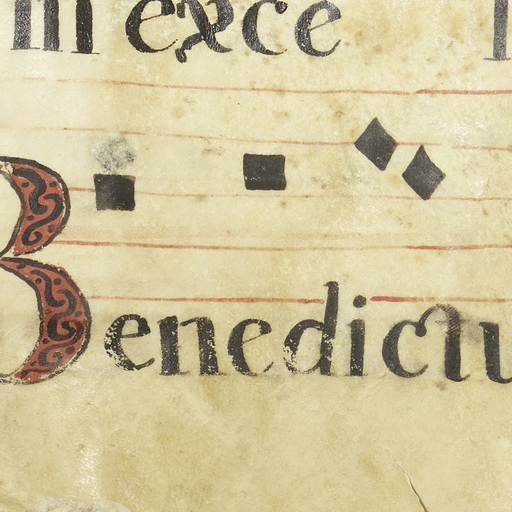 m exce
Benedictu